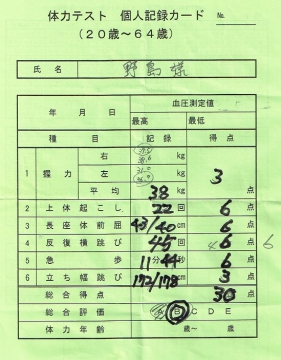 体力テスト 個人記録カード No.
(20歳~64歳)
氏名 野島 様
年 月 日 血圧測定値
最高 最低
種目 記録 得点
1 握力 右 kg
左 kg
平均 38 kg 3 点
2 上体起こし 22 回 6 点
3 長座体前屈 43/40 cm 6 点
4 反復横跳び 45 回 6 点 6
5 急歩 11分44秒 6 点
6 立ち幅跳び 172/178 cm 3 点
総合得点 30 点
総合評価 A B C D E
体力年齢 歳~ 歳